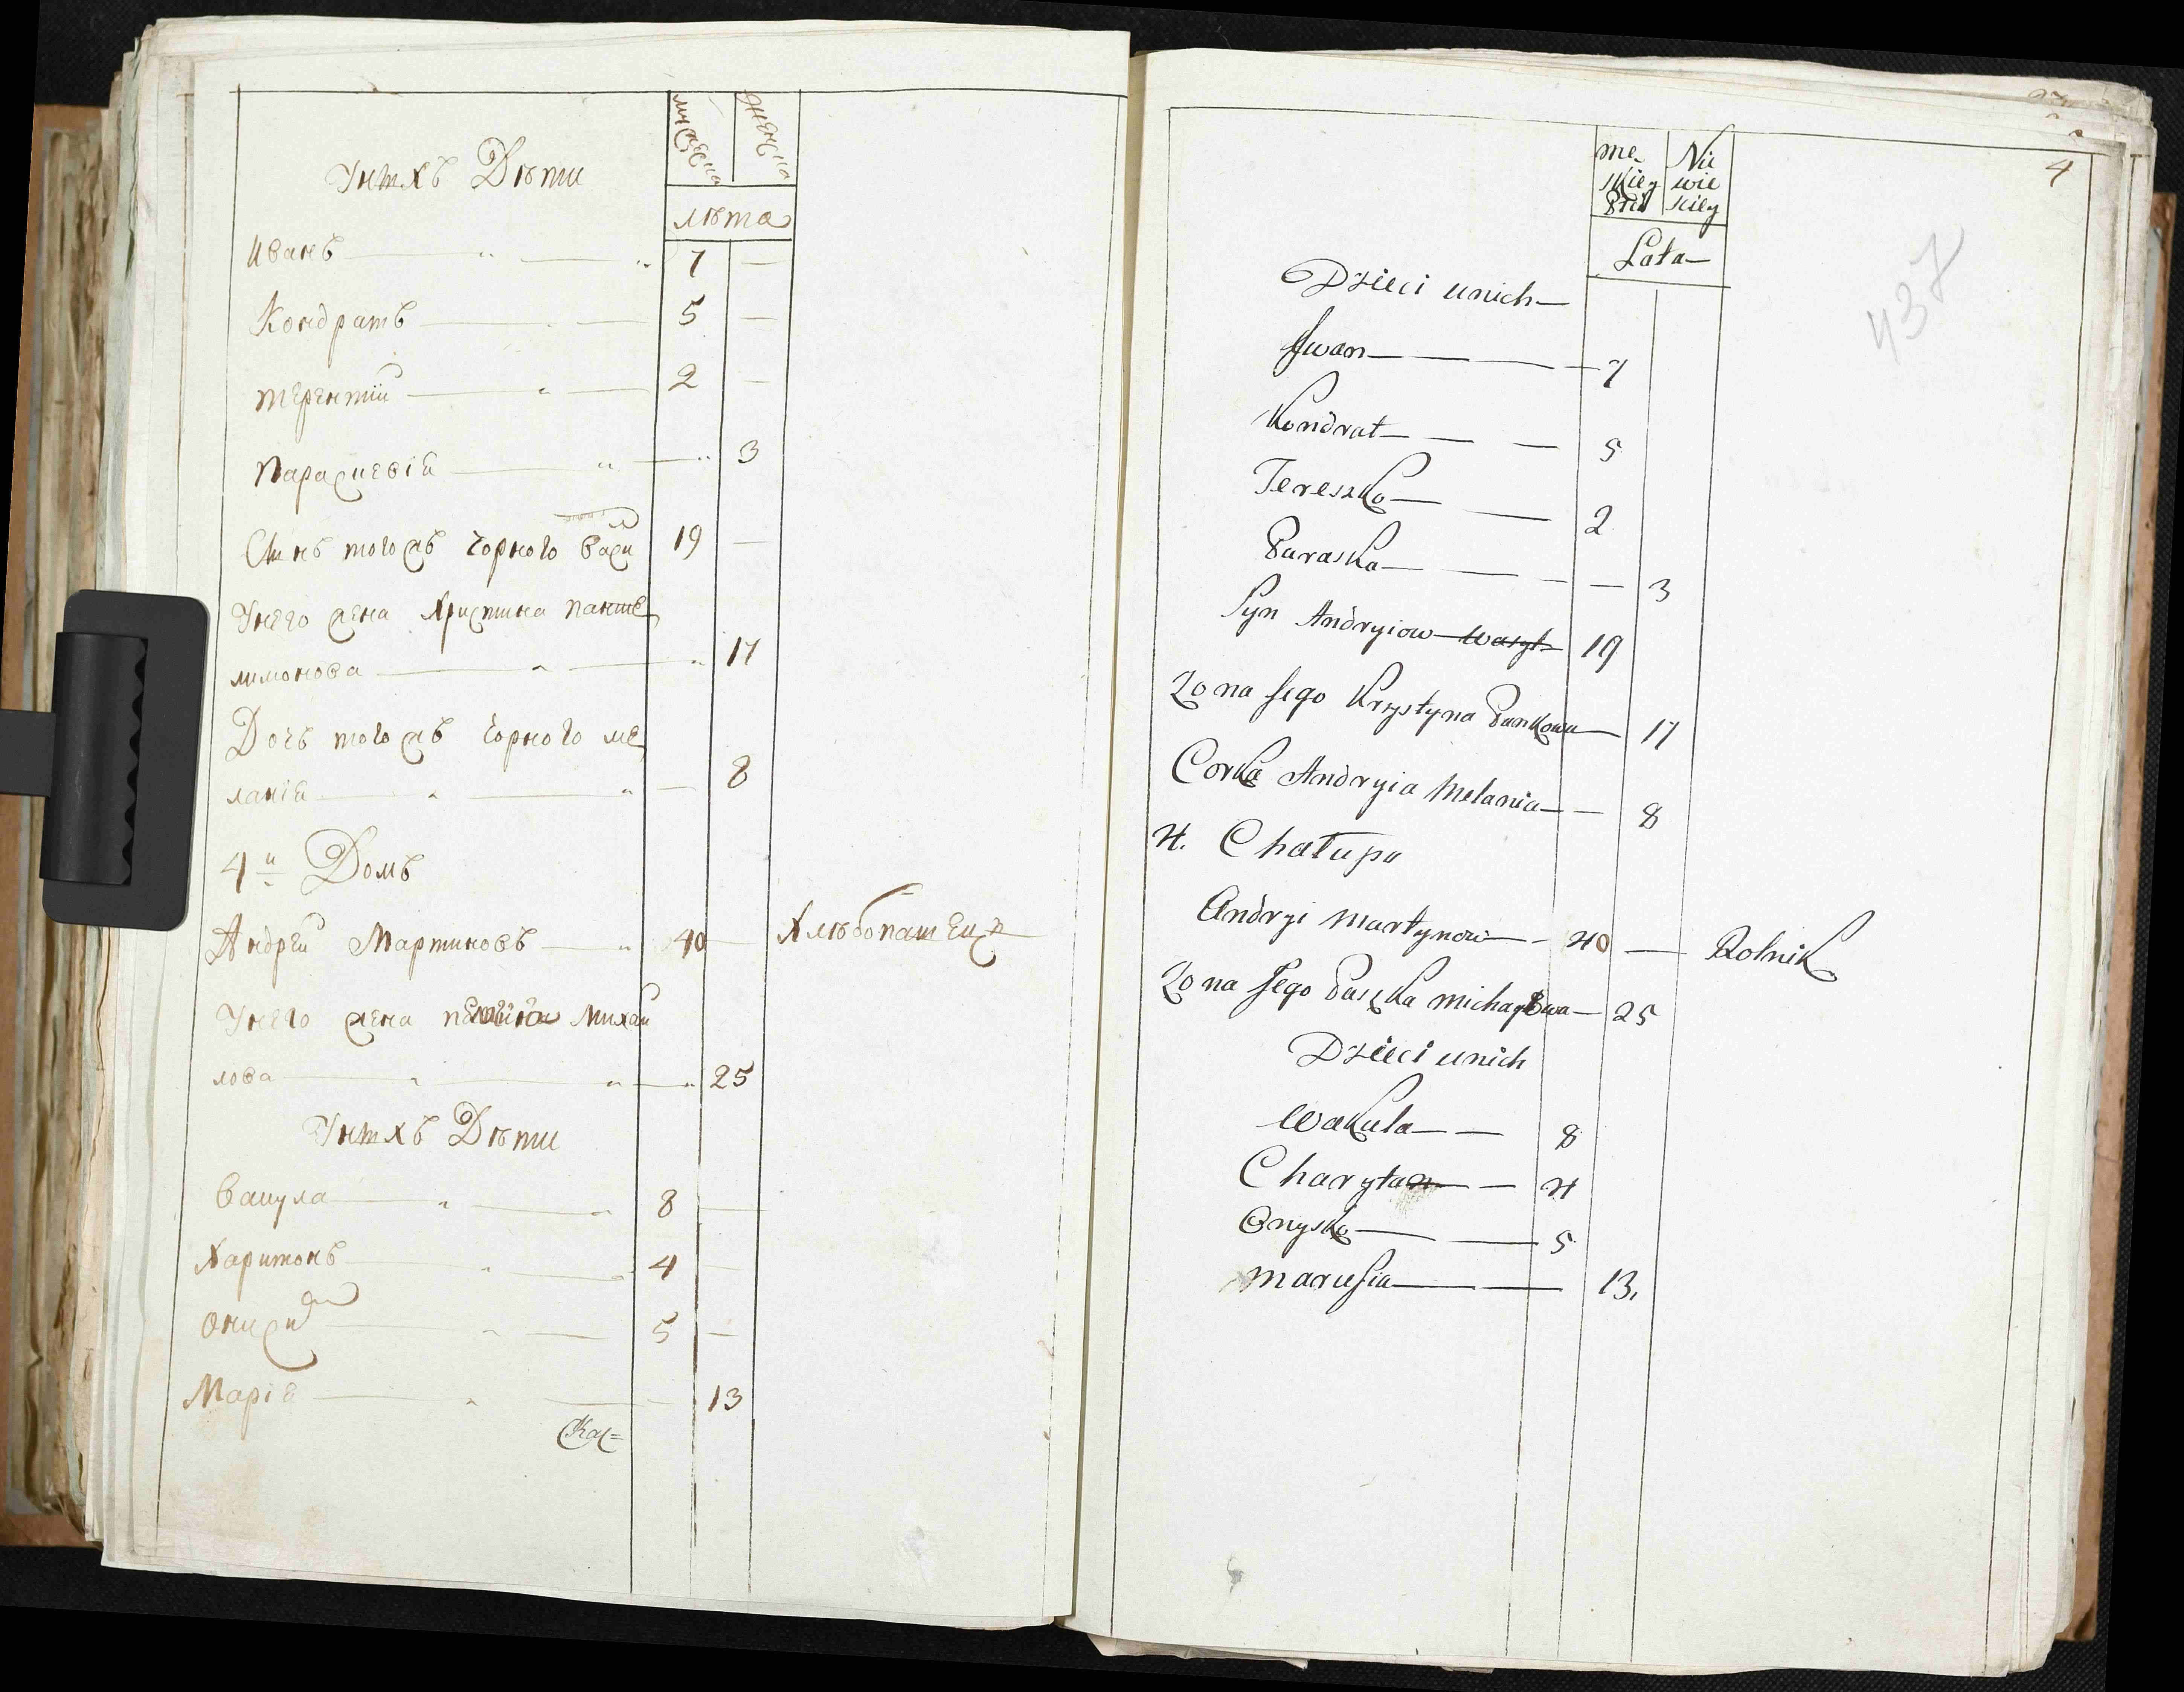 мужеска
женска
лѣта
Унихъ Дѣти
Иванъ 7 —
Кондратъ 5 —
Терентій 2 —
Параскевія — 3
Синъ тогожъ Чорного Васи 19 —
Унего жена Христина Панте
лимонова — 17
Дочъ тогожъ Чорного Ме
ланія — 8
4й Домъ
Андрей Мартиновъ 40 — Хлѣбопашецъ
Унего жена Михай
лова — 25
Унихъ Дѣти
Вакула 8 —
Харитонъ 4 —
Ониси 5 —
Марія — 13
4
437
Nie
wie
skiey
Lata
Dzieci unich
Jwan — 7
Kondrat — 5
Tereszko — 2
Paraska — 3
Syn Andryiow Wasyl 19
Zona Jego Krystyna Pankowa — 17
Corka Andryia Melania — 8
4. Chałupa
Andryi Martynow — 40 — Rolnik
Zona Jego Paszka Michayłowa — 25
Dzieci unich
Wakuła — 8
Charyton — 4
Onysko — 5
Marusia — 13,